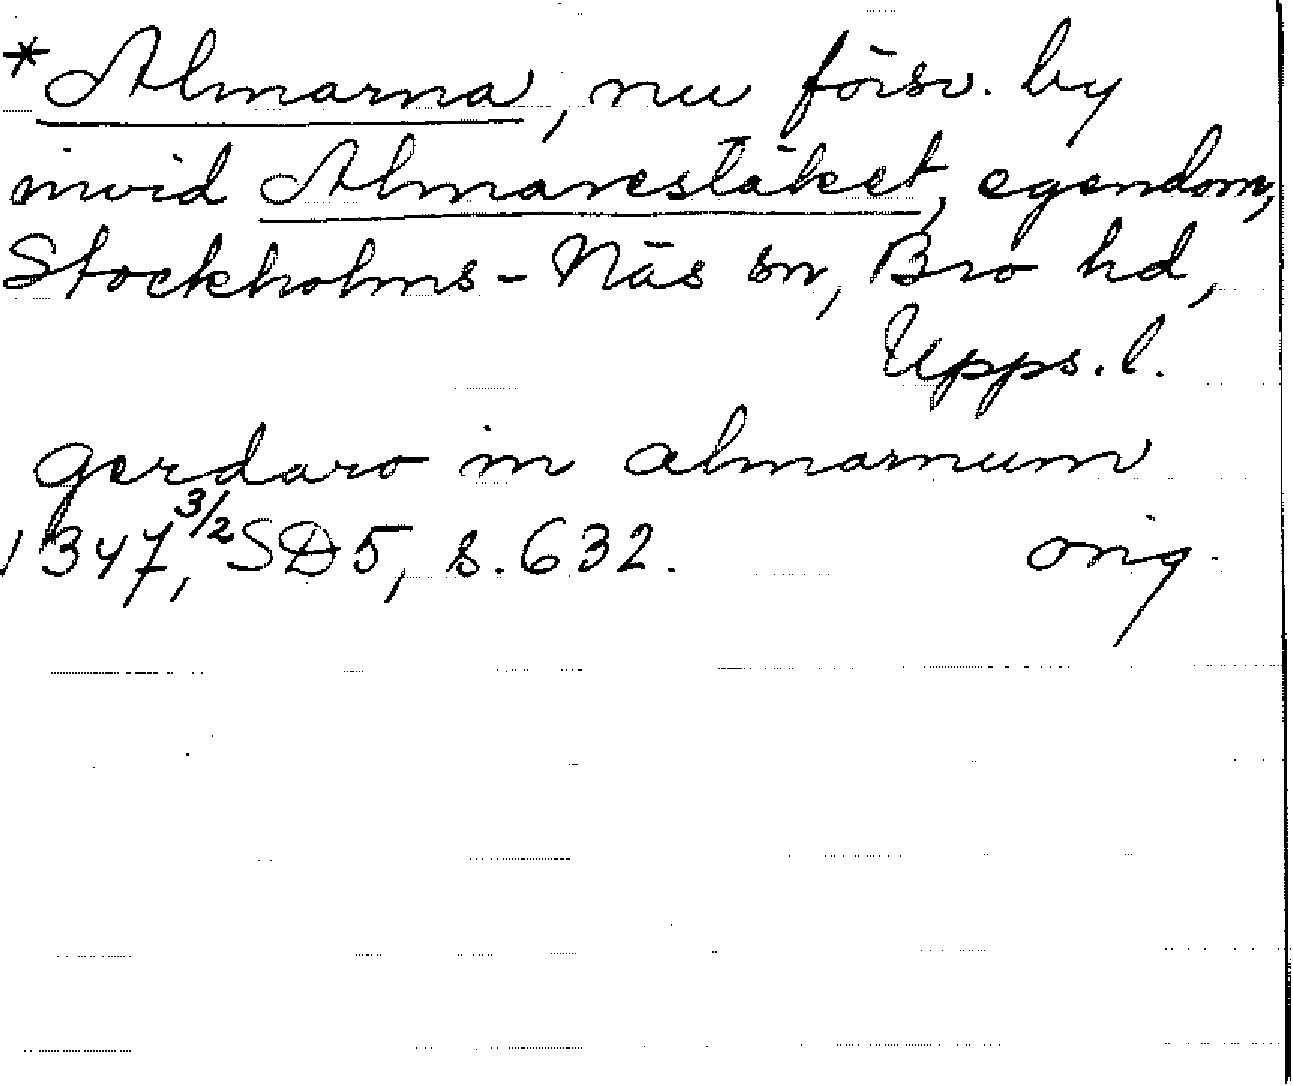 *Almarna, nu försv. by
invid Almarestäket, egendom,
Stockholms-Näs sn, Bro hd,
Upps. l.
gerdaro in almarnum
1347 3/2, SD 5, s. 632. orig.